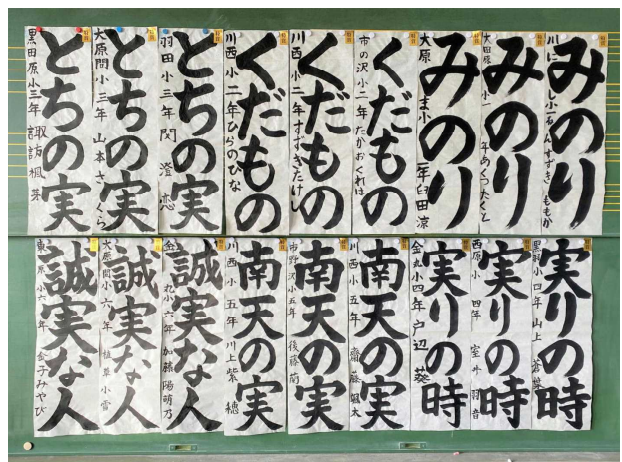 みのり
川にし小一ねん すずき ももか
みのり
大田原小一年 あくつ たくと
みのり
大原ま小一年 臼田 涼
くだもの
市の沢小二年 たかおくれは
くだもの
川西小二年 すずき たけし
くだもの
川西小二年 ひらの ひな
とちの実
羽田小三年 関 澄恋
とちの実
大原間小三年 山本 さくら
とちの実
黒田原小三年 諏訪 楓芽
実りの時
黒羽小四年 山上 蒼葉
実りの時
西原小四年 室井 羽音
実りの時
金丸小四年 戸辺 葵
南天の実
川西小五年 齋藤 颯太
南天の実
市野沢小五年 後藤 蘭
南天の実
川西小五年 川上 紫穂
誠実な人
金丸小六年 加藤 陽萌乃
誠実な人
大原間小六年 植草 小雪
誠実な人
小六年 金子 みやび